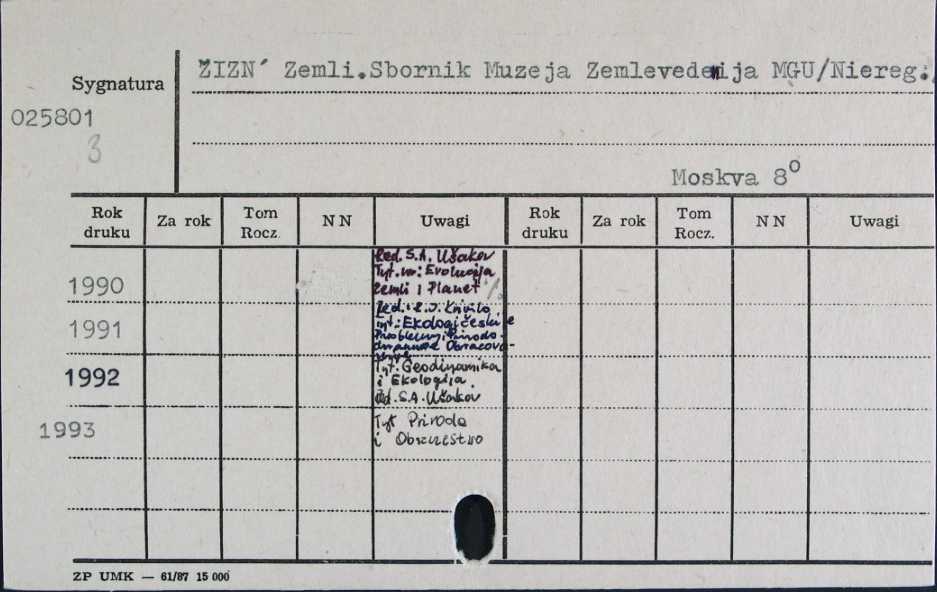 ŽIZN´ Zemli.Sbornik Muzeja Zemlevedenija MGU/Niereg.
Sygnatura
025801
3
Moskva 8°
Rok druku Za rok Tom Rocz. NN Uwagi Rok druku Za rok Tom Rocz. NN Uwagi
1990
Red. S.A. Ušakov
Tyt. Evolucija
Zemli i Planet
1991
Red.
tyt: Ekologičeskie
Problemy i Prirodo-
1992
Tyt. Geodinamika
i Ekologija.
Red. S.A. Ušakov
1993
Tyt Priroda
i Obszczestwo
ZP UMK — 61/87 15 000